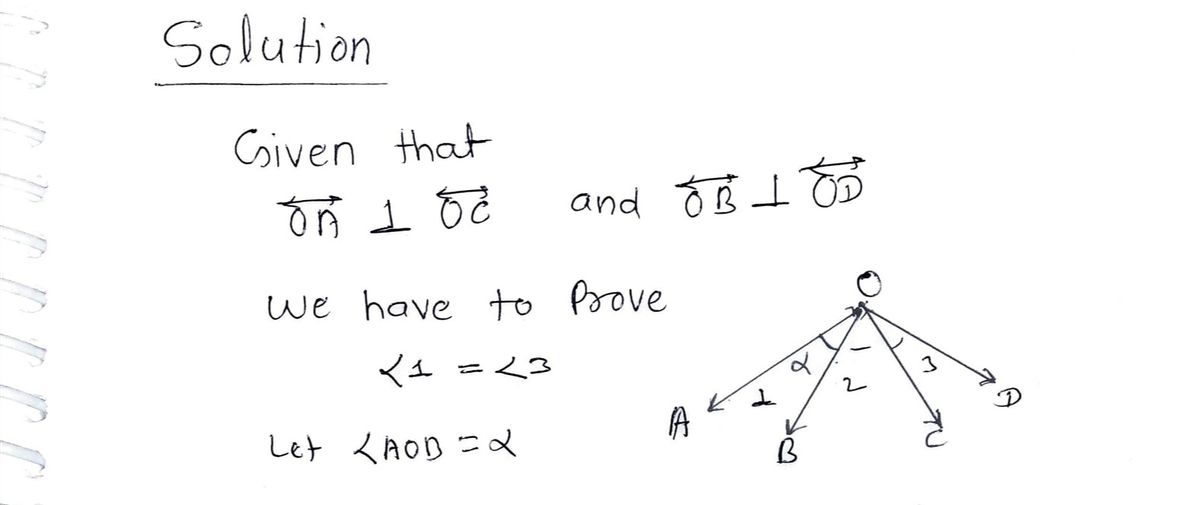 Solution
Given that
OA ⊥ OC and OB ⊥ OD
We have to Prove
<1 = <3
Let <AOB = α
O
α
1
2
3
A
B
C
D